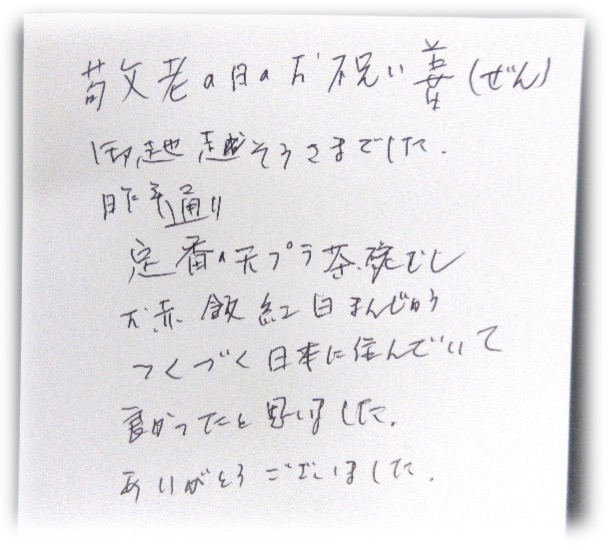 敬老の日のお祝い善(ぜん)
御馳走そうさまでした.
昨年通り
定番の天プラ茶碗むし
お赤飯紅白まんじゅう
つくづく日本に住んでいて
良かったと思いました.
ありがとうございました.